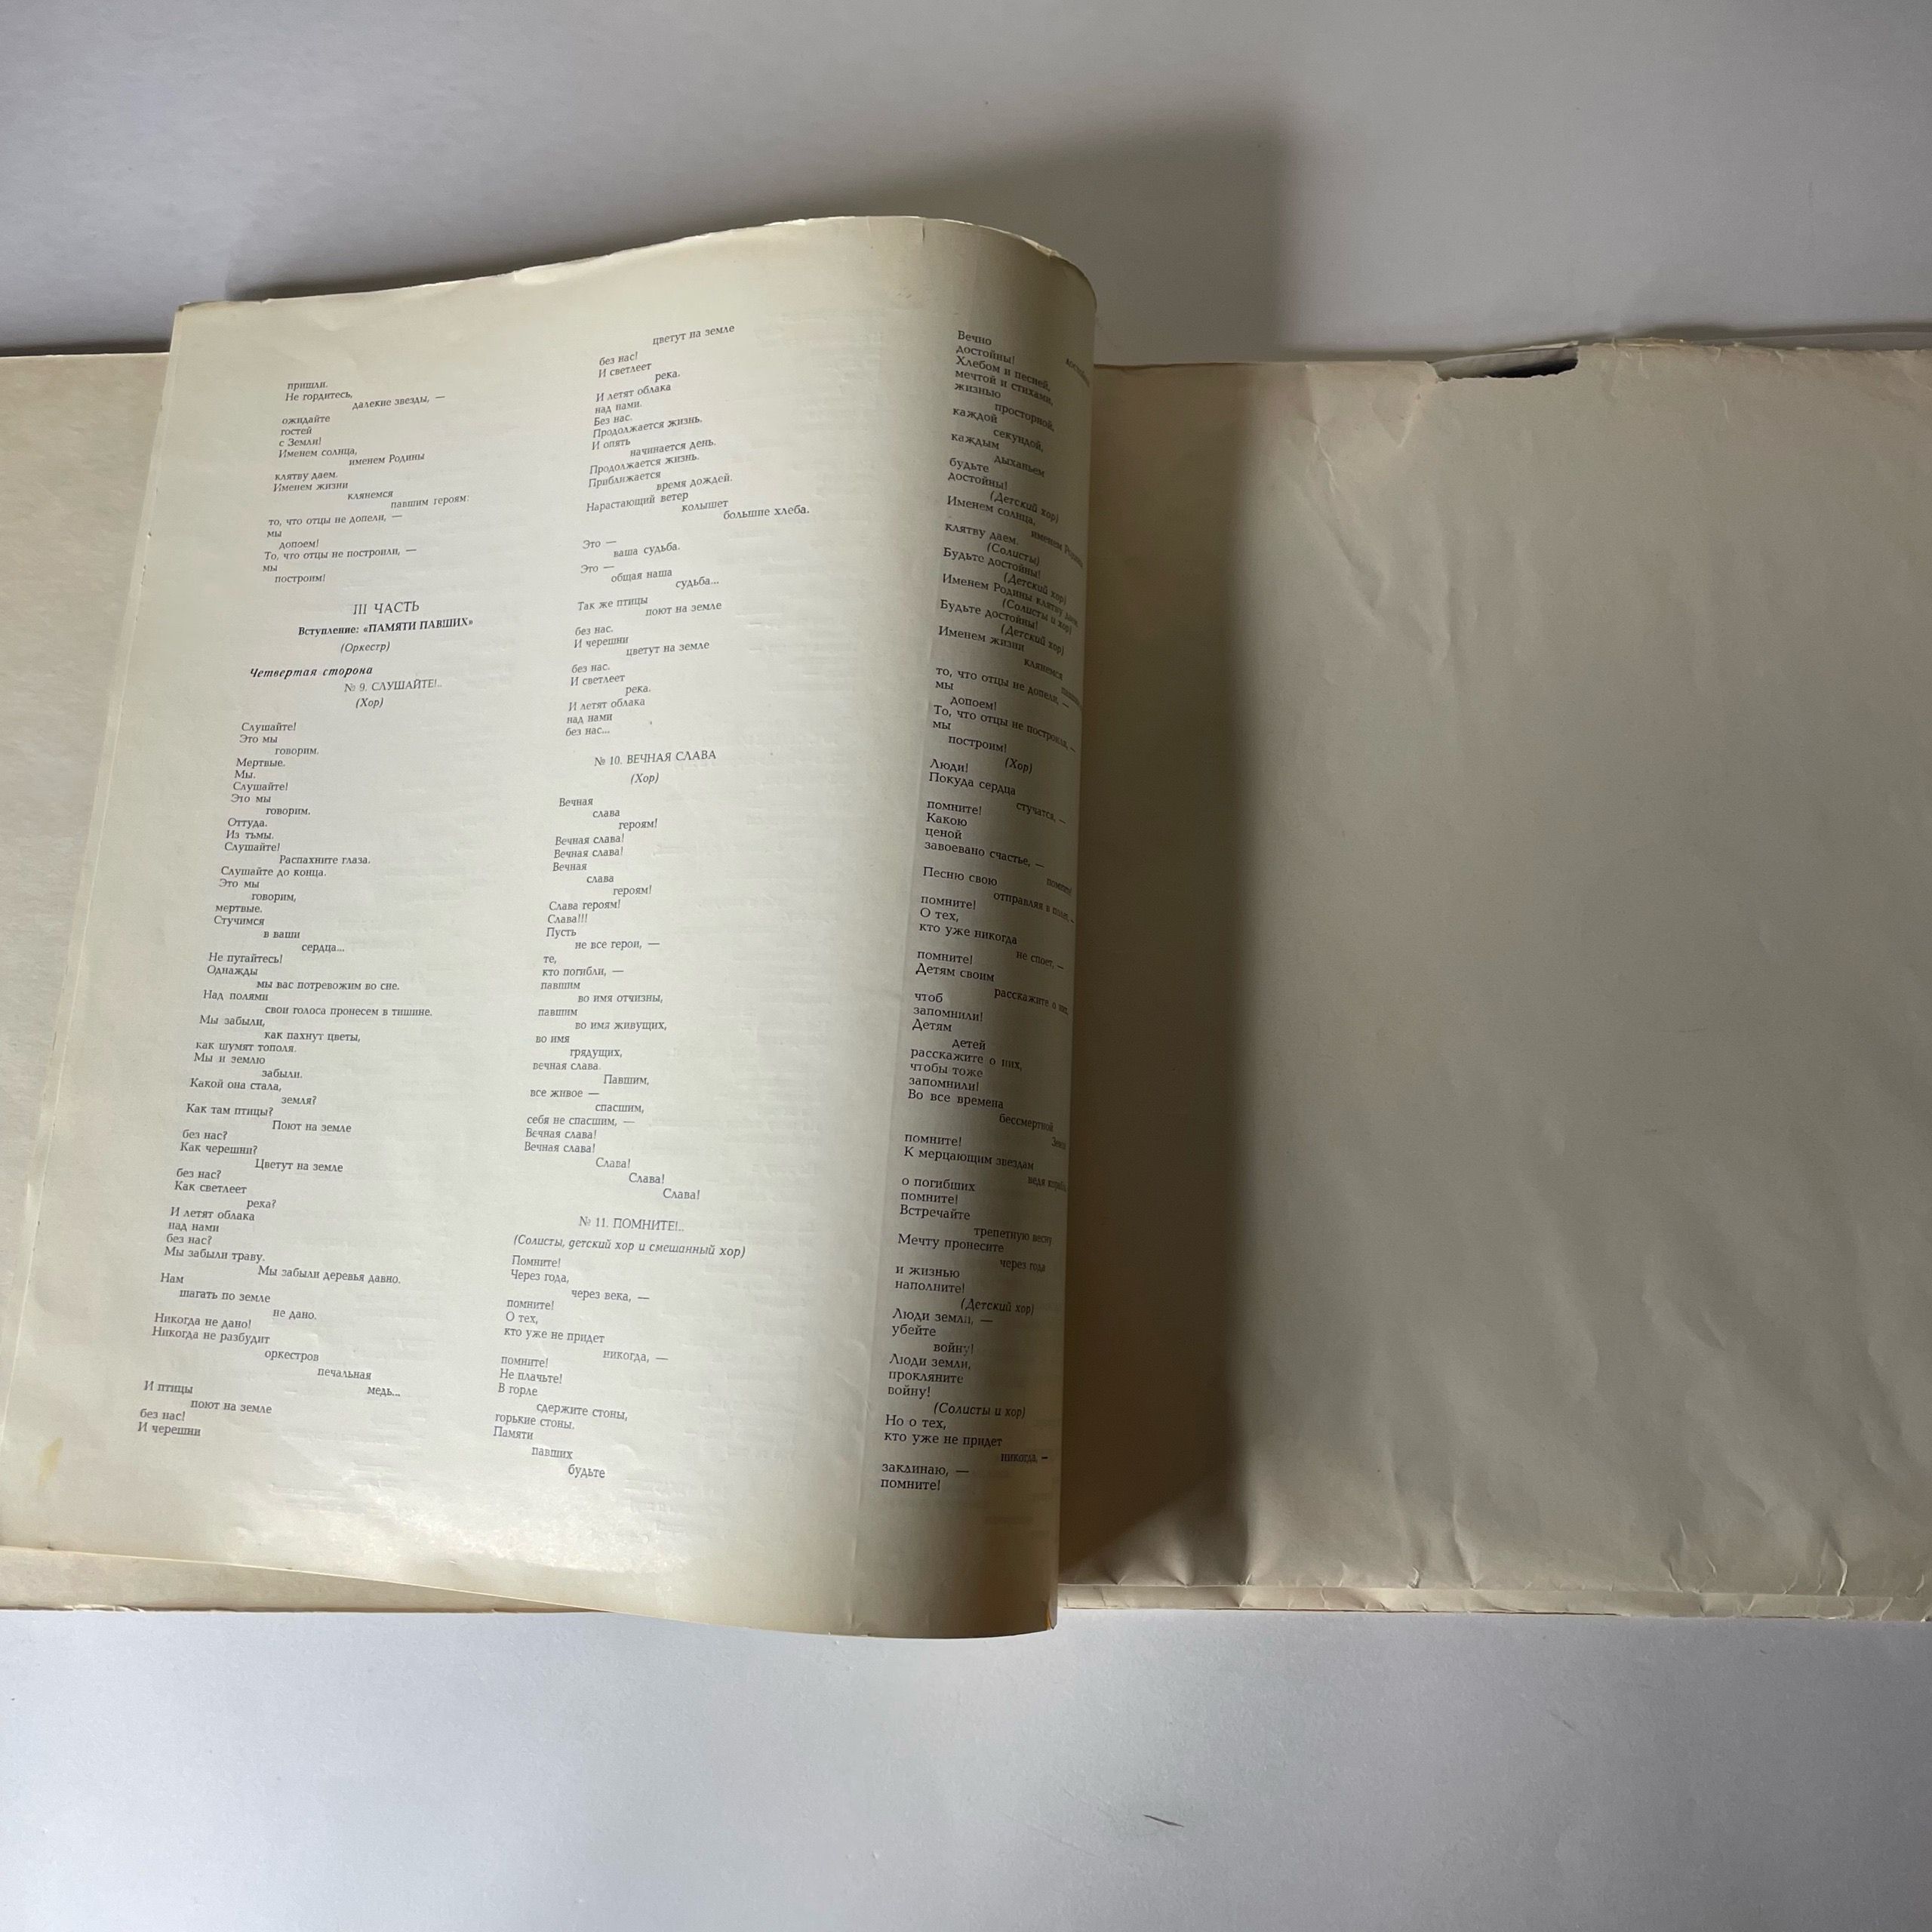 пришли.
Не гордитесь,
далекие звезды, —
ожидайте
гостей
с Земли!
Именем солнца,
именем Родины
клятву даем.
Именем жизни
клянемся
павшим героям:
то, что отцы не допели, —
мы
допоем!
То, что отцы не построили, —
мы
построим!
III ЧАСТЬ
Вступление: «ПАМЯТИ ПАВШИХ»
(Оркестр)
Четвертая сторона
№ 9. СЛУШАЙТЕ!..
(Хор)
Слушайте!
Это мы
говорим.
Мертвые.
Мы.
Слушайте!
Это мы
говорим.
Оттуда.
Из тьмы.
Слушайте!
Распахните глаза.
Слушайте до конца.
Это мы
говорим,
мертвые.
Стучимся
в ваши
сердца...
Не пугайтесь!
Однажды
мы вас потревожим во сне.
Над полями
свои голоса пронесем в тишине.
Мы забыли,
как пахнут цветы,
как шумят тополя.
Мы и землю
забыли.
Какой она стала,
земля?
Как там птицы?
Поют на земле
без нас?
Как черешни?
Цветут на земле
без нас?
Как светлеет
река?
И летят облака
над нами
без нас?
Мы забыли траву.
Мы забыли деревья давно.
Нам
шагать по земле
не дано.
Никогда не дано!
Никогда не разбудит
оркестров
печальная
медь...
И птицы
поют на земле
без нас!
И черешни
цветут на земле
без нас!
И светлеет
река.
И летят облака
над нами.
Без нас.
Продолжается жизнь.
И опять
начинается день.
Продолжается жизнь.
Приближается
время дождей.
Нарастающий ветер
колышет
большие хлеба.
Это —
ваша судьба.
Это —
общая наша
судьба...
Так же птицы
поют на земле
без нас.
И черешни
цветут на земле
без нас.
И светлеет
река.
И летят облака
над нами
без нас...
№ 10. ВЕЧНАЯ СЛАВА
(Хор)
Вечная
слава
героям!
Вечная слава!
Вечная слава!
Вечная
слава
героям!
Слава героям!
Слава!!!
Пусть
не все герои, —
те,
кто погибли, —
павшим
во имя отчизны,
павшим
во имя живущих,
во имя
грядущих,
вечная слава.
Павшим,
все живое —
спасшим,
себя не спасшим, —
Вечная слава!
Вечная слава!
Слава!
Слава!
Слава!
№ 11. ПОМНИТЕ!..
(Солисты, детский хор и смешанный хор)
Помните!
Через года,
через века, —
помните!
О тех,
кто уже не придет
никогда, —
помните!
Не плачьте!
В горле
сдержите стоны,
горькие стоны.
Памяти
павших
будьте
Вечно
достойны!
Хлебом и песней,
мечтой и стихами,
жизнью
просторной,
каждой
секундой,
каждым
дыханьем
будьте
достойны!
(Детский хор)
Именем солнца,
именем Родины
клятву даем.
(Солисты)
Будьте достойны!
(Детский хор)
Именем Родины клятву даем.
(Солисты и хор)
Будьте достойны!
(Детский хор)
Именем жизни
клянемся
то, что отцы не допели, —
мы
допоем!
То, что отцы не построили, —
мы
построим!
(Хор)
Люди!
Покуда сердца
стучатся, —
помните!
Какою
ценой
завоевано счастье, —
помните!
Песню свою
отправляя в полет, —
помните!
О тех,
кто уже никогда
не споет, —
помните!
Детям своим
расскажите о них,
чтоб
запомнили!
Детям
детей
расскажите о них,
чтобы тоже
запомнили!
Во все времена
бессмертной
Земли
помните!
К мерцающим звездам
ведя корабли
о погибших
помните!
Встречайте
трепетную весну
Мечту пронесите
через года
и жизнью
наполните!
(Детский хор)
Люди земли, —
убейте
войну!
Люди земли,
прокляните
войну!
(Солисты и хор)
Но о тех,
кто уже не придет
никогда, —
заклинаю, —
помните!